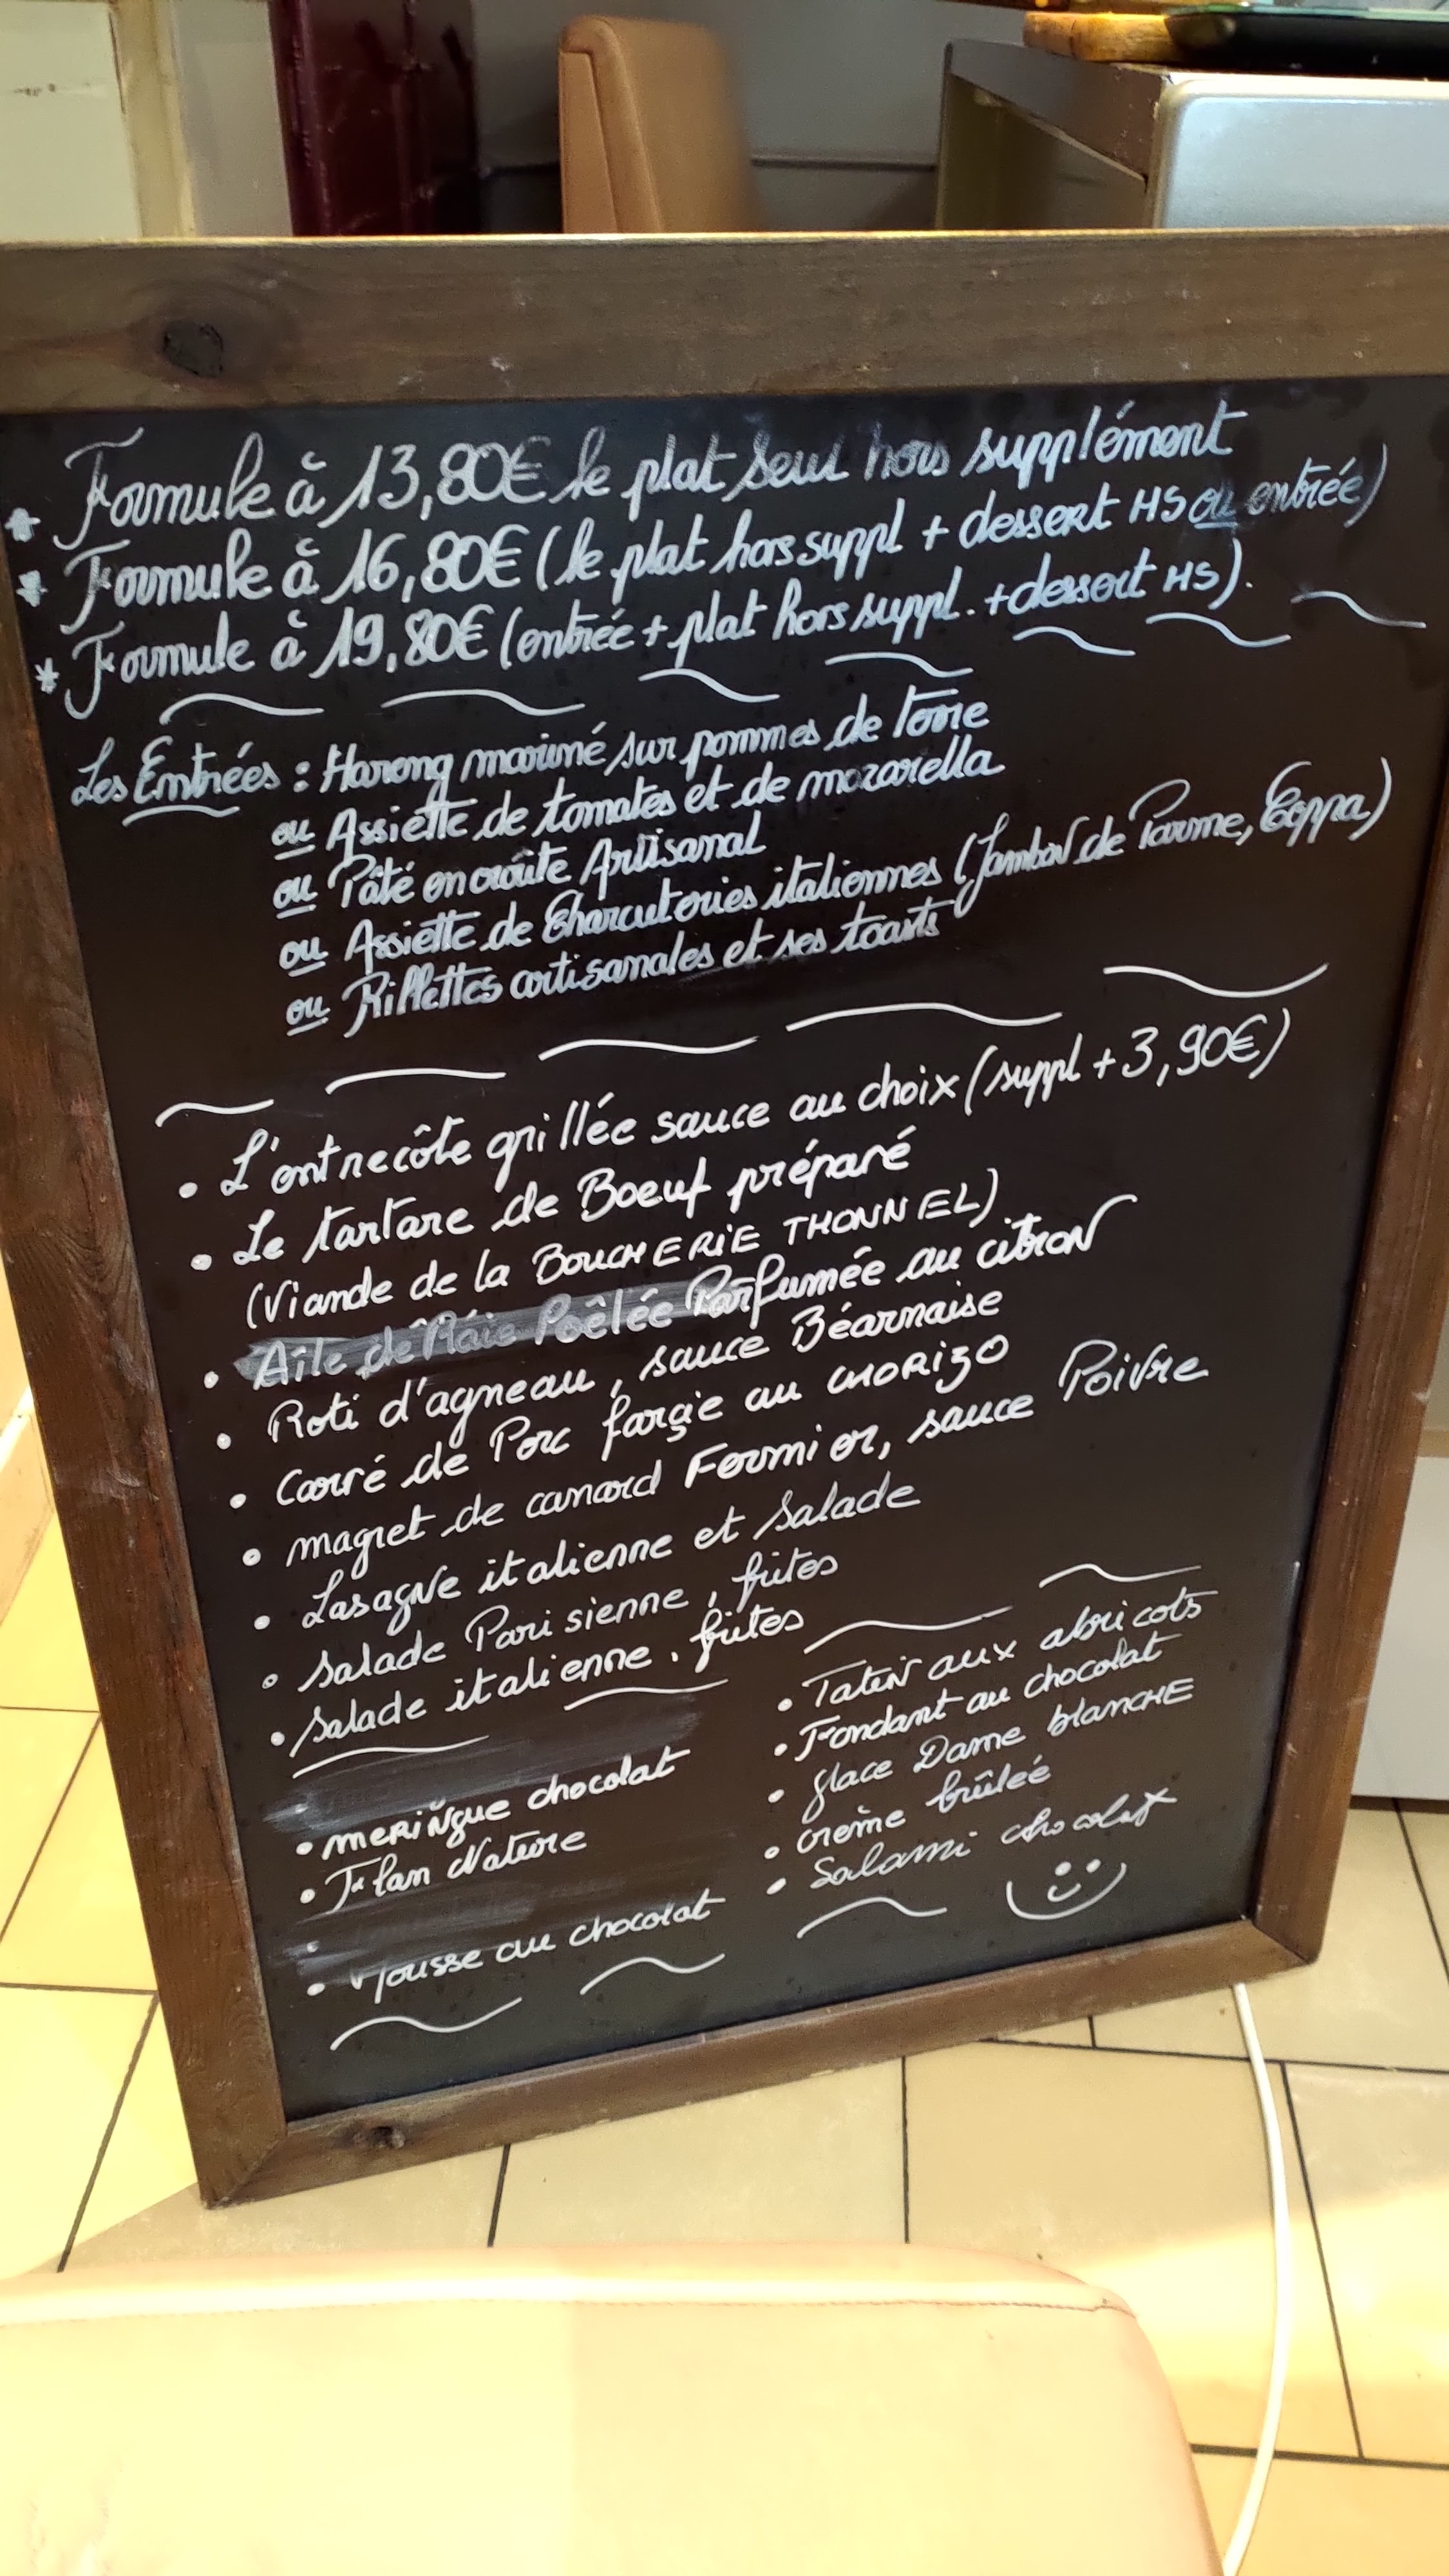 * Formule à 13,80€ le plat seul hors supplément
* Formule à 16,80€ (le plat hors suppl + dessert HS ou entrée)
* Formule à 19,80€ (entrée + plat hors suppl. + dessert HS).
Les Entrées : Hareng mariné sur pommes de terre
ou Assiette de tomates et de mozarella
ou Pâté en croûte Artisanal
ou Assiette de Charcuteries italiennes (Jambon de Parme, Coppa)
ou Rillettes artisanales et ses toasts
• L'entrecôte grillée sauce au choix (suppl + 3,90€)
• Le tartare de Boeuf préparé
(Viande de la BOUCHERIE THONNEL)
• Aile de Raie Poêlée Parfumée au citron
• Roti d'agneau, sauce Béarnaise
• Carré de Porc farçie au CHORIZO
• magret de canard Fermier, sauce Poivre
• Lasagne italienne et salade
• salade Parisienne, frites
• salade italienne. frites
• meringue chocolat
• Flan Nature
• Mousse au chocolat
• Tatin aux abricots
• Fondant au chocolat
• glace Dame blanche
• crème brûlée
• Salami chocolat